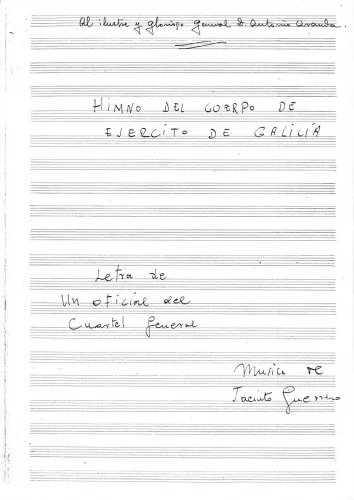 Al ilustre y glorioso General D. Antonio Aranda
HIMNO DEL CUERPO DE
EJERCITO DE GALICIA
Letra de
Un oficial del
Cuartel General
Musica de
Jacinto Guerrero